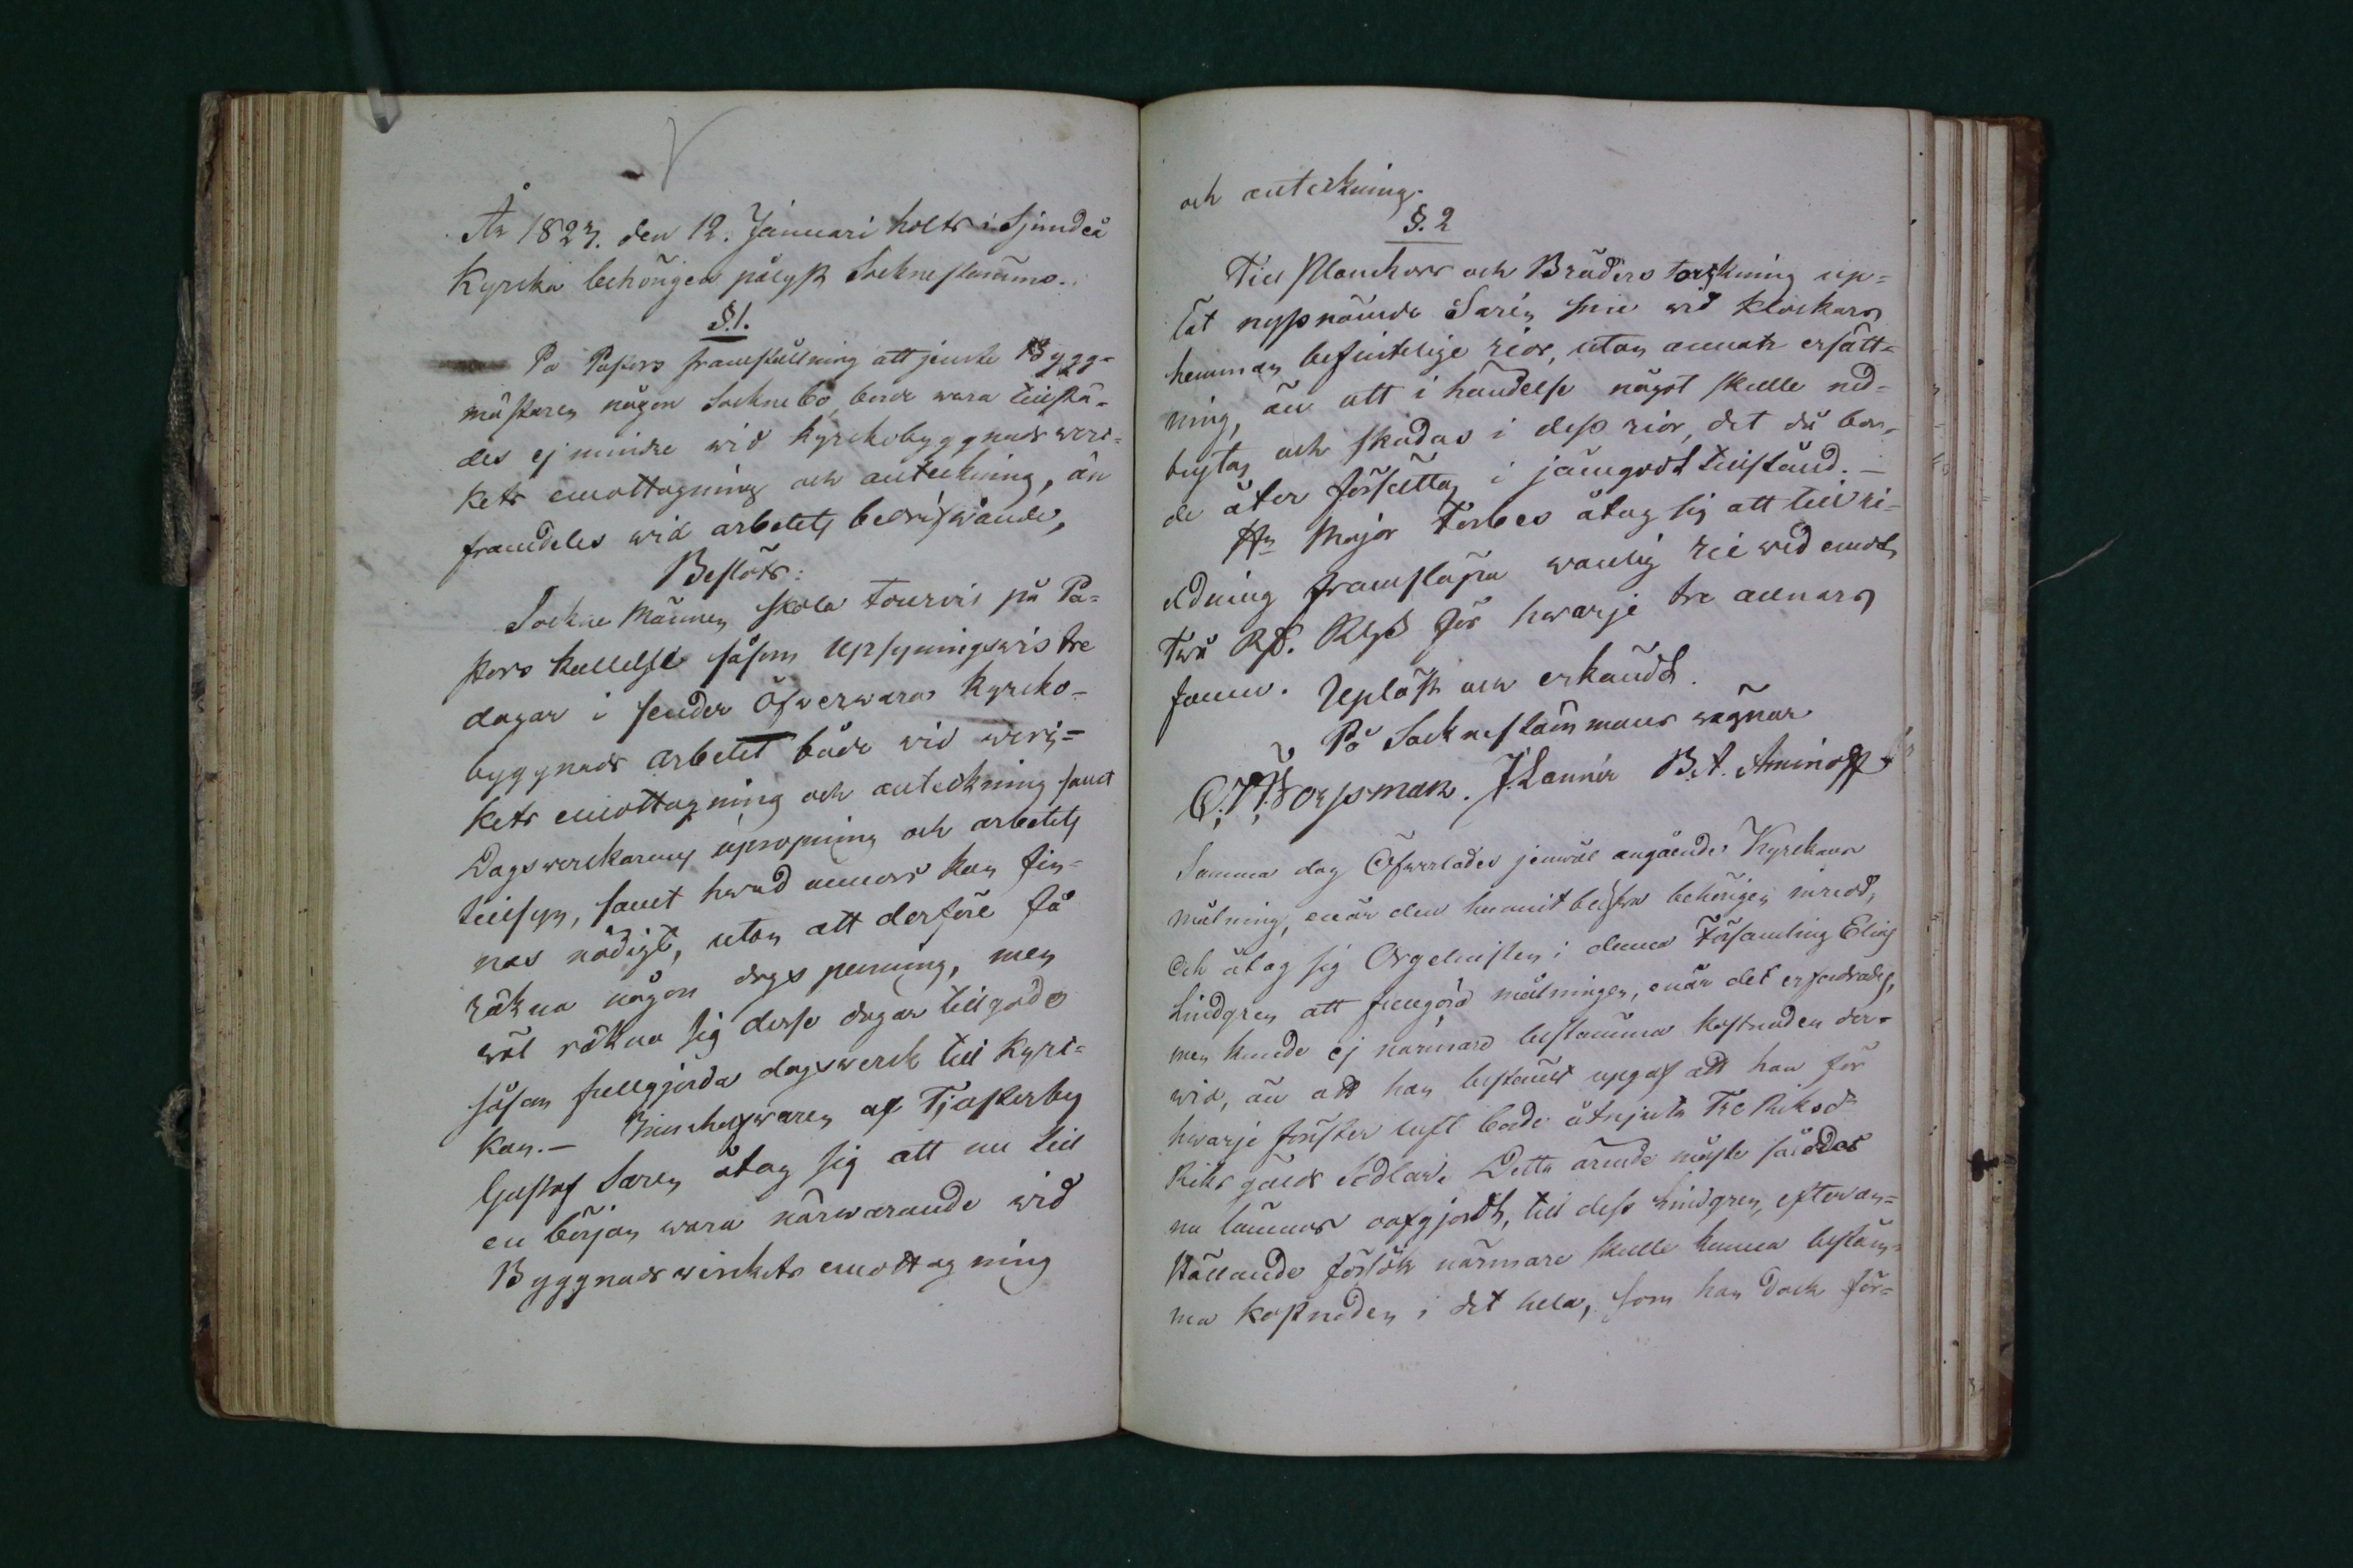 År 1823. den 12. Januari holts i Sjundeå
Kyrcka behörigen pålyst Sockne stämma.
§.1.
På Pastors framställning att jemte Bygg-
mästaren någon Sockne bo, borde wara tillstä-
des ej mindre wid kyrckobyggnads wer-
kets emottagning och anteckning, än
framdeles wid arbetets bedrifwande,
Beslöts:
Sockne Männen skola tourvis på Pa-
stors kallelse såsom Upsyningswis tre
dagar i sender öfwerwara Kyrcko-
byggnads arbetet både wid wer-
kets emottagning och anteckning samt
Dagswerckarnes upropning och arbetets
tillsyn, samt hwad annars kan fin-
nas nödigt, utan att derföre få
räkna någon dags penning, men
wäl räkna sig desse dagar till godo
såsom fullgjorda dagswerck till Kyr-
kan. – af Tjusterby
Gustaf Saren åtog sig att nu till
en början wara närwarande wid
Byggnads wirckets emottagning
och anteckning.
§. 2
Till Planckors och Bräders torckning up-
lät nyssnämnde Saren sin wid Klockars
hemman befintelige rior, utan annatt ersätt-
ning, än att i händelse något skulle ned-
brytas och skadas i dess rior, det då bor-
de åter försättas i jämgodt tillstånd. –
Hr Major Forbes åtog sig att till ri-
eldning framsläpa wanlig rie wed emot
Två Rd. Rgs för hwarje tre alnars
famn. Upläst och erkändt.
På Sockne stämmans wägnar
C. J. Forssman. J. Lannér B. A. Aminoff
Samma dag Öfwerlades jemwäl angående Kyrckans
målning, enär den hunnit blifwa behörigen inredd,
och åtog sig Orgelnisten i denna Församling Elias
Lindgren att fullgöra målningen, enär det erfordrades,
men kunde ej närmare bestämma kostnaden der-
wid, än att han bestämt upgaf att han för
hwarje fönster luft borde åtnjuta Tre Riksd
Riksgälds Sedlar. Detta ärende måste således
nu lämnas oafgjordt, till dess Lindgren, efter an-
ställande försök närmare skulle kunna bestäm-
ma kostnaden i det hela, som han dock för-